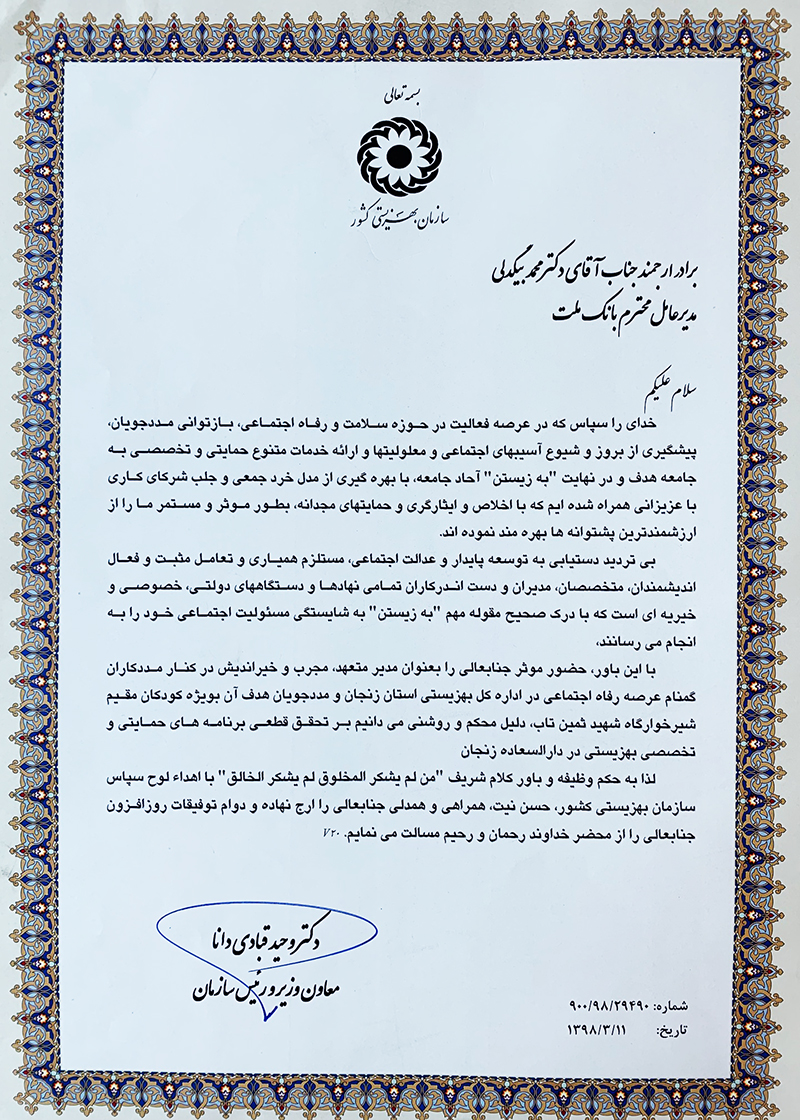 بسمه تعالی
سازمان بهزیستی کشور
برادر ارجمند جناب آقای دکتر محمد بیگدلی
مدیرعامل محترم بانک ملت
سلام علیکم
خدای را سپاس که در عرصه فعالیت در حوزه سلامت و رفاه اجتماعی، بازتوانی مددجویان،
پیشگیری از بروز و شیوع آسیبهای اجتماعی و معلولیتها و ارائه خدمات متنوع حمایتی و تخصصی به
جامعه هدف و در نهایت "به زیستن" آحاد جامعه، با بهره گیری از مدل خرد جمعی و جلب شرکای کاری
با عزیزانی همراه شده ایم که با اخلاص و ایثارگری و حمایتهای مجدانه، بطور موثر و مستمر ما را از
ارزشمندترین پشتوانه ها بهره مند نموده اند.
بی تردید دستیابی به توسعه پایدار و عدالت اجتماعی، مستلزم همیاری و تعامل مثبت و فعال
اندیشمندان، متخصصان، مدیران و دست اندرکاران تمامی نهادها و دستگاههای دولتی، خصوصی و
خیریه ای است که با درک صحیح مقوله مهم "به زیستن" به شایستگی مسئولیت اجتماعی خود را به
انجام می رسانند،
با این باور، حضور موثر جنابعالی را بعنوان مدیر متعهد، مجرب و خیراندیش در کنار مددکاران
گمنام عرصه رفاه اجتماعی در اداره کل بهزیستی استان زنجان و مددجویان هدف آن بویژه کودکان مقیم
شیرخوارگاه شهید ثمین تاب، دلیل محکم و روشنی می دانیم بر تحقق قطعی برنامه های حمایتی و
تخصصی بهزیستی در دارالسعاده زنجان
لذا به حکم وظیفه و باور کلام شریف "من لم یشکر المخلوق لم یشکر الخالق" با اهداء لوح سپاس
سازمان بهزیستی کشور، حسن نیت، همراهی و همدلی جنابعالی را ارج نهاده و دوام توفیقات روزافزون
جنابعالی را از محضر خداوند رحمان و رحیم مسالت می نمایم. ۷۲۰/
دکتر وحید قبادی دانا
معاون وزیر و رئیس سازمان
شماره: ۹۰۰/۹۸/۲۹۴۹۰
تاریخ: ۱۳۹۸/۳/۱۱